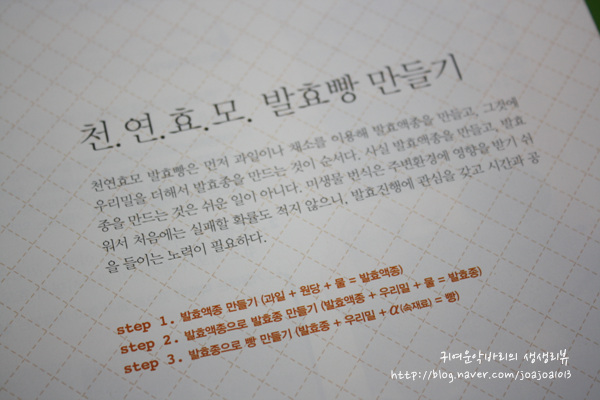 천.연.효.모. 발효빵 만들기
천연효모 발효빵은 먼저 과일이나 채소를 이용해 발효액종을 만들고, 그것에
우리밀을 더해서 발효종을 만드는 것이 순서다. 사실 발효액종을 만들고, 발효
종을 만드는 것은 쉬운 일이 아니다. 미생물 번식은 주변환경에 영향을 받기 쉬
워서 처음에는 실패할 확률도 적지 않으니, 발효진행에 관심을 갖고 시간과 공
을 들이는 노력이 필요하다.
step 1. 발효액종 만들기 (과일 + 원당 + 물 = 발효액종)
step 2. 발효액종으로 발효종 만들기 (발효액종 + 우리밀 + 물 = 발효종)
step 3. 발효종으로 빵 만들기 (발효종 + 우리밀 + α(속재료) = 빵)
귀여운악바리의 생생리뷰
http://blog.naver.com/joajoa1013